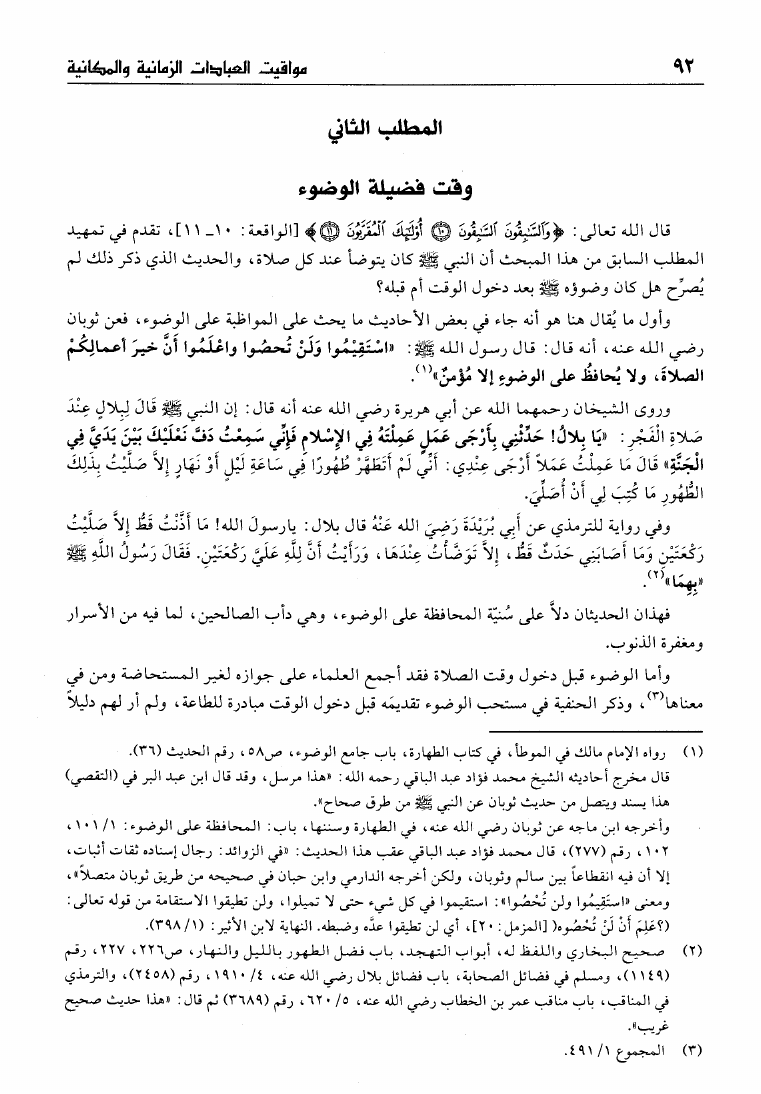 ٩٢ مواقيت العبادات الزمانية والمكانية
المطلب الثاني
وقت فضيلة الوضوء
قال الله تعالى: ﴿وَٱلسَّٰبِقُونَ ٱلسَّٰبِقُونَ ۝١٠ أُوْلَٰٓئِكَ ٱلْمُقَرَّبُونَ ۝١١﴾ [الواقعة: ١٠ـ ١١]، تقدم في تمهيد
المطلب السابق من هذا المبحث أن النبي ﷺ كان يتوضأ عند كل صلاة، والحديث الذي ذكر ذلك لم
يُصرِّح هل كان وضوؤه ﷺ بعد دخول الوقت أم قبله؟
وأول ما يُقال هنا هو أنه جاء في بعض الأحاديث ما يحث على المواظبة على الوضوء، فعن ثوبان
رضي الله عنه، أنه قال: قال رسول الله ﷺ: «اسْتَقِيْمُوا وَلَنْ تُحصُوا واعْلَمُوا أَنَّ خيرَ أعمالِكُمْ
الصلاةَ، ولا يُحافظُ على الوضوءِ إلا مُؤْمنٌ»(١).
وروى الشيخان رحمهما الله عن أبي هريرة رضي الله عنه أنه قال: إن النبي ﷺ قَالَ لِبِلالٍ عِنْدَ
صَلاةِ الْفَجْرِ: «يَا بِلالُ! حَدِّثْنِي بِأَرْجَى عَمَلٍ عَمِلْتَهُ فِي الإِسْلامِ فَإِنِّي سَمِعْتُ دَفَّ نَعْلَيْكَ بَيْنَ يَدَيَّ فِي
الْجَنَّةِ» قَالَ مَا عَمِلْتُ عَمَلاً أَرْجَى عِنْدِي: أَنِّي لَمْ أَتَطَهَّرْ طُهُورًا فِي سَاعَةِ لَيْلٍ أَوْ نَهَارٍ إِلاَّ صَلَّيْتُ بِذَلِكَ
الطُّهُورِ مَا كُتِبَ لِي أَنْ أُصَلِّيَ.
وفي رواية للترمذي عن أَبِي بُرَيْدَةَ رَضِيَ الله عَنْهُ قال بلال: يارسولَ الله! مَا أَذَّنْتُ قَطُّ إِلاَّ صَلَّيْتُ
رَكْعَتَيْنِ وَمَا أَصَابَنِي حَدَثٌ قَطُّ، إِلاَّ تَوَضَّأْتُ عِنْدَهَا، وَرَأَيْتُ أَنَّ لِلَّهِ عَلَيَّ رَكْعَتَيْنِ. فَقَالَ رَسُولُ اللَّهِ ﷺ
«بِهِمَا»(٢).
فهذان الحديثان دلاَّ على سُنيّة المحافظة على الوضوء، وهي دأب الصالحين، لما فيه من الأسرار
ومغفرة الذنوب.
وأما الوضوء قبل دخول وقت الصلاة فقد أجمع العلماء على جوازه لغير المستحاضة ومن في
معناها(٣)، وذكر الحنفية في مستحب الوضوء تقديمَه قبل دخول الوقت مبادرة للطاعة، ولم أر لهم دليلاً
(١) رواه الإمام مالك في الموطأ، في كتاب الطهارة، باب جامع الوضوء، ص٥٨، رقم الحديث (٣٦).
قال مخرج أحاديثه الشيخ محمد فؤاد عبد الباقي رحمه الله: «هذا مرسل، وقد قال ابن عبد البر في (التقصي)
هذا يسند ويتصل من حديث ثوبان عن النبي ﷺ من طرق صحاح».
وأخرجه ابن ماجه عن ثوبان رضي الله عنه، في الطهارة وسننها، باب: المحافظة على الوضوء: ١/ ١٠١،
١٠٢، رقم (٢٧٧)، قال محمد فؤاد عبد الباقي عقب هذا الحديث: «في الزوائد: رجال إسناده ثقات أثبات،
إلا أن فيه انقطاعاً بين سالم وثوبان، ولكن أخرجه الدارمي وابن حبان في صحيحه من طريق ثوبان متصلاً»،
ومعنى «استَقِيمُوا ولن تُحْصُوا»: استقيموا في كل شيء حتى لا تميلوا، ولن تطيقوا الاستقامة من قوله تعالى:
(؟عَلِمَ أَنْ لَنْ تُحْصُوه( [المزمل: ٢٠]، أي لن تطيقوا عدَّه وضبطه. النهاية لابن الأثير: (١/ ٣٩٨).
(٢) صحيح البخاري واللفظ له، أبواب التهجد، باب فضل الطهور بالليل والنهار، ص٢٢٦، ٢٢٧، رقم
(١١٤٩)، ومسلم في فضائل الصحابة، باب فضائل بلال رضي الله عنه، ٤/ ١٩١٠، رقم (٢٤٥٨)، والترمذي
في المناقب، باب مناقب عمر بن الخطاب رضي الله عنه، ٥/ ٦٢٠، رقم (٣٦٨٩) ثم قال: «هذا حديث صحيح
غريب».
(٣) المجموع ١/ ٤٩١.